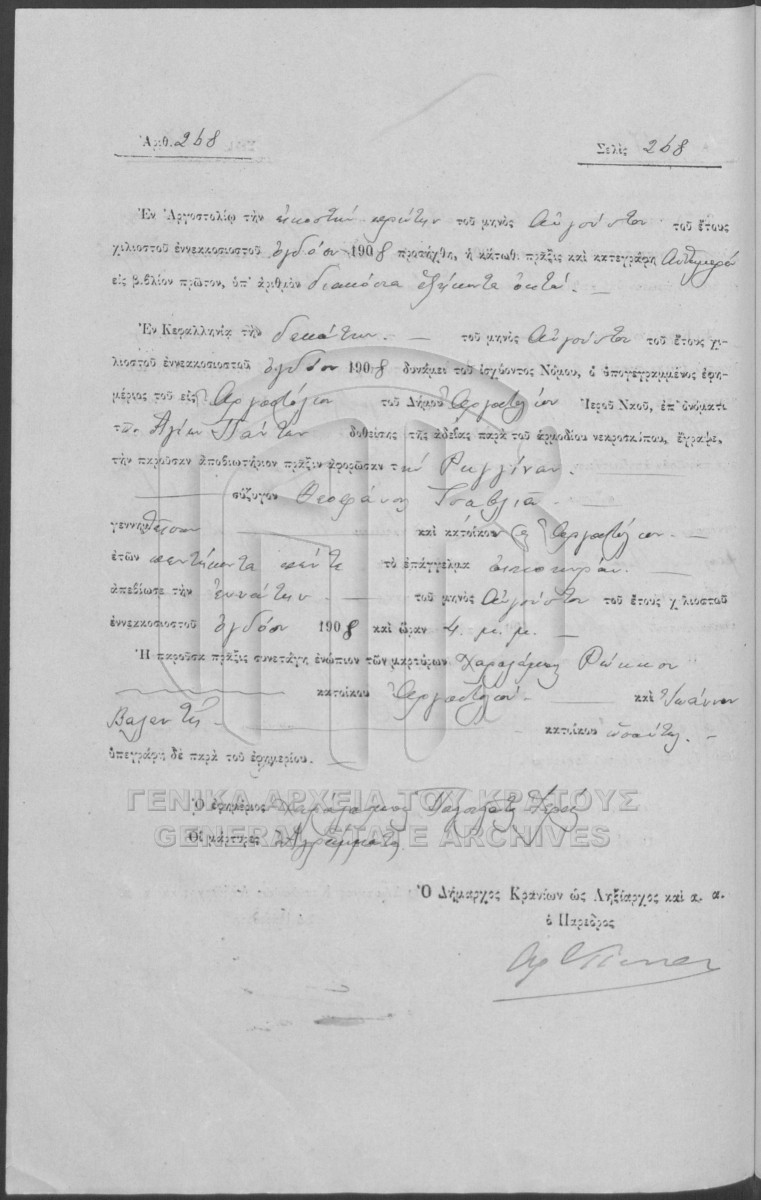 Ἀριθ. 268
Σελὶς 268
Ἐν Ἀργοστολίῳ τὴν εἰκοστὴν πρώτην τοῦ μηνὸς Αὐγούστου τοῦ ἔτους
χιλιοστοῦ ἐννεακοσιοστοῦ ὀγδόου 1908 προσήχθη, ἡ κάτωθι πρᾶξις καὶ κατεγράφη αὐθημερὸν
εἰς βιβλίον πρῶτον, ὑπ' ἀριθμὸν διακόσια ἑξήκοντα ὀκτώ.
Ἐν Κεφαλληνίᾳ τὴν δεκάτην τοῦ μηνὸς Αὐγούστου τοῦ ἔτους χι-
λιοστοῦ ἐννεακοσιοστοῦ ὀγδόου 1908 δυνάμει τοῦ ἰσχύοντος Νόμου, ὁ ὑπογεγραμμένος ἐφη-
μέριος τοῦ εἰς Ἀργοστόλιον τοῦ Δήμου Ἀργοστολίου Ἱεροῦ Ναοῦ, ἐπ' ὀνόματι
τῶν Ἁγίων Πάντων δοθείσης τῆς ἀδείας παρὰ τοῦ ἁρμοδίου νεκροσκόπου, ἔγραψε,
τὴν παροῦσαν ἀποβιωτήριον πρᾶξιν ἀφορῶσαν τὴν Ρεγγίναν
σύζυγον Θεοφάνους
γεννηθεῖσαν καὶ κάτοικον Ἀργοστολίου
ἐτῶν πεντήκοντα πέντε τὸ ἐπάγγελμα οἰκοκυράν
ἀπεβίωσε τὴν ἐννάτην τοῦ μηνὸς Αὐγούστου τοῦ ἔτους χιλιοστοῦ
ἐννεακοσιοστοῦ ὀγδόου 1908 καὶ ὥραν 4. μ. μ.
Ἡ παροῦσα πρᾶξις συνετάγη ἐνώπιον τῶν μαρτύρων Χαραλάμπους Ρόκκου
κατοίκου Ἀργοστολίου καὶ Ἰωάννου
Βαλεντῆ κατοίκου ὡσαύτως
ὑπεγράφη δὲ παρὰ τοῦ ἐφημερίου.
ΓΕΝΙΚΑ ΑΡΧΕΙΑ ΤΟΥ ΚΡΑΤΟΥΣ
Ὁ ἐφημέριος Χαράλαμπος Ἱερεύς
GENERAL STATE ARCHIVES
Οἱ μάρτυρες ἀγράμματοι
Ὁ Δήμαρχος Κρανίων ὡς Ληξίαρχος καὶ α. α.
ὁ Πάρεδρος